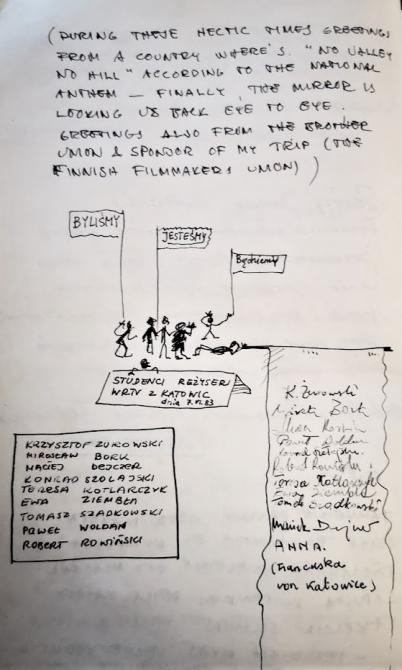 (DURING THESE HECTIC TIMES GREETINGS
FROM A COUNTRY WHERE'S "NO VALLEY
NO HILL" ACCORDING TO THE NATIONAL
ANTHEM – FINALLY, THE MIRROR IS
LOOKING US BACK EYE TO EYE.
GREETINGS ALSO FROM THE BROTHER
UNION & SPONSOR OF MY TRIP (THE
FINNISH FILMMAKERS UNION) )
BYLIŚMY
JESTEŚMY
Będziemy
STUDENCI REŻYSERII
WRTV Z KATOWIC
dnia 7.VI.83
KRZYSZTOF ŻUROWSKI
MIROSŁAW BORK
MACIEJ DEJCZER
KONRAD SZOŁAJSKI
TERESA KOTLARCZYK
EWA ZIEMBŁA
TOMASZ SZADKOWSKI
PAWEŁ WOLDAN
ROBERT ROWIŃSKI
K. Żurowski
Mirek Bork
Paweł Woldan
Robert Rowiński
Teresa Kotlarczyk
Ewa Ziembła
Tomek Szadkowski
ANNA.
(Francuska
von Katowice)